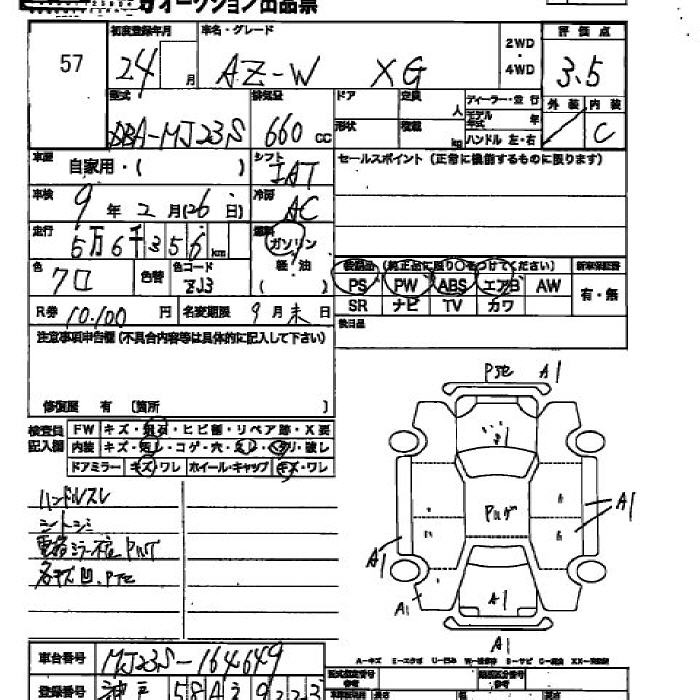 オークション出品票
57 初度登録年月 24 月
車名・グレード AZ-W XG
2WD ・ 4WD
評価点 3.5
型式 DBA-MJ23S 排気量 660 CC
ドア 定員 人 ディーラー・並行
形状 積載 kg モデル年式 年
ハンドル 左・右
外装 内装 C
車歴 自家用・( ) シフト IAT
セールスポイント (正常に機能するものに限ります)
車検 9年2月(26日) 冷房 AC
走行 5万6千356km 燃料 ガソリン 軽・油 ( )
色 クロ 色替 色コード ZJ3
装備品 (純正品に限り○をつけてください) 新車保証書
PS PW ABS エアB AW 有・無
SR ナビ TV カワ
R券 10.100円 名変期限 9月末日
後日品
注意事項申告欄 (不具合内容等は具体的に記入して下さい)
修復歴 有 〔箇所 〕
検査員記入欄 FW キズ・飛石・ヒビ割・リペア跡・X要
内装 キズ・汚レ・コゲ・穴・スレ・ヘタリ・破レ
ドアミラー キズ・ワレ ホイール・キャップ キズ・ワレ
ハンドルスレ
シートシミ
各キズ凹
A1
A1
A1
A1
A1
A1
車台番号 MJ23S-164649
登録番号 神戸 58
A-キズ E-エクボ U-凹み W-補修跡 S-サビ C-腐食 XX-交換済